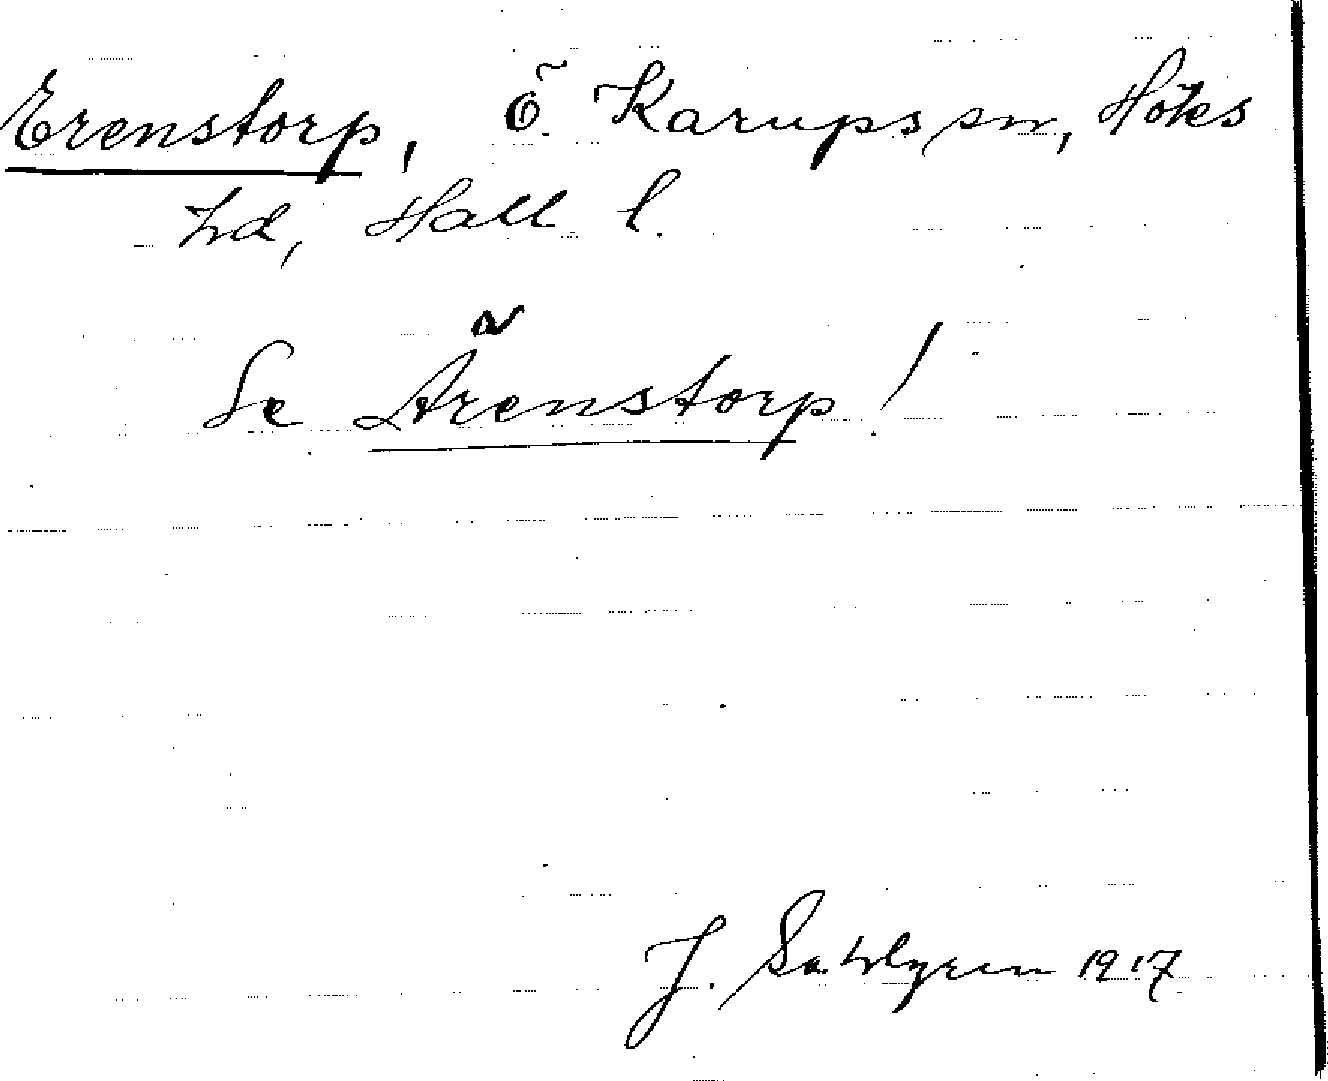 Erenstorp, Ö Karups sn, Höks
hd, Hall l.
Se Ärenstorp!
J. Sahlgren 1917